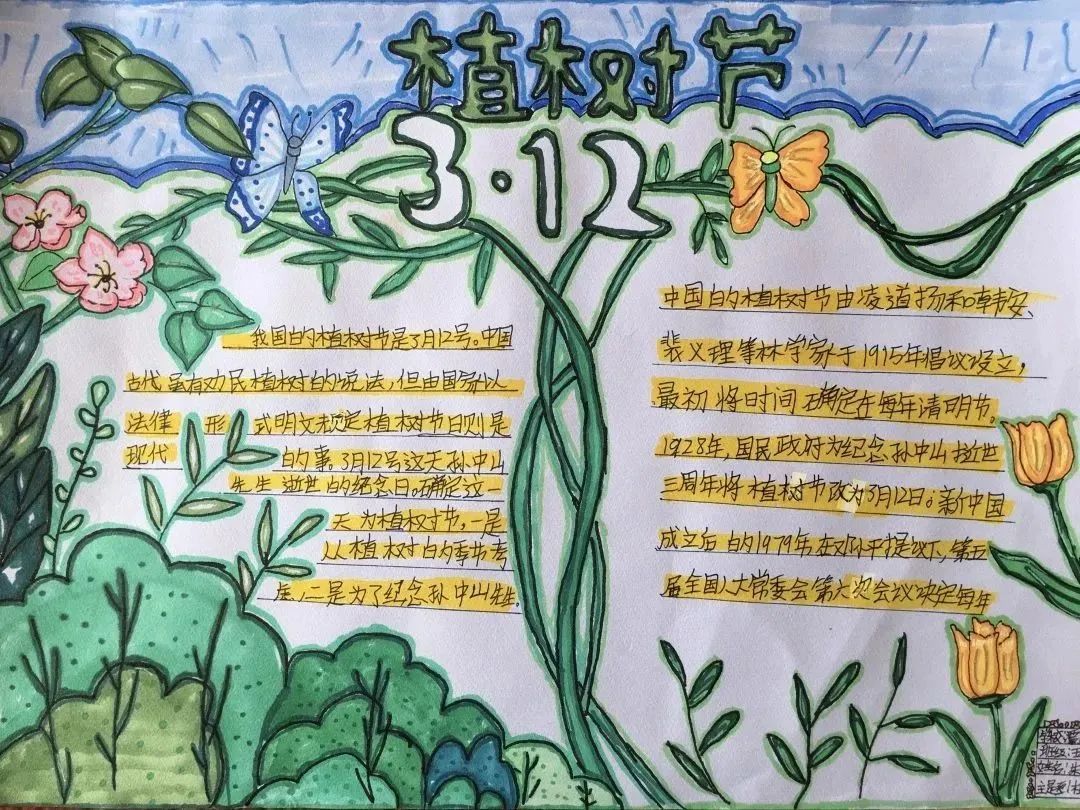 植树节
3·12
我国的植树节是3月12号。中国
古代虽有劝民植树的说法,但由国家以
法律形式明文规定植树节日则是
现代的事。3月12号这天孙中山
先生逝世的纪念日。确定这一
天为植树节,一是
从植树的季节考
虑,二是为了纪念孙中山先生。
中国的植树节由凌道扬和韩安、
裴义理等林学家于1915年倡议设立,
最初将时间确定在每年清明节。
1928年,国民政府为纪念孙中山逝世
三周年将植树节改为3月12日。新中国
成立后的1979年在邓小平提议下、第五
届全国人大常委会第六次会议决定每年